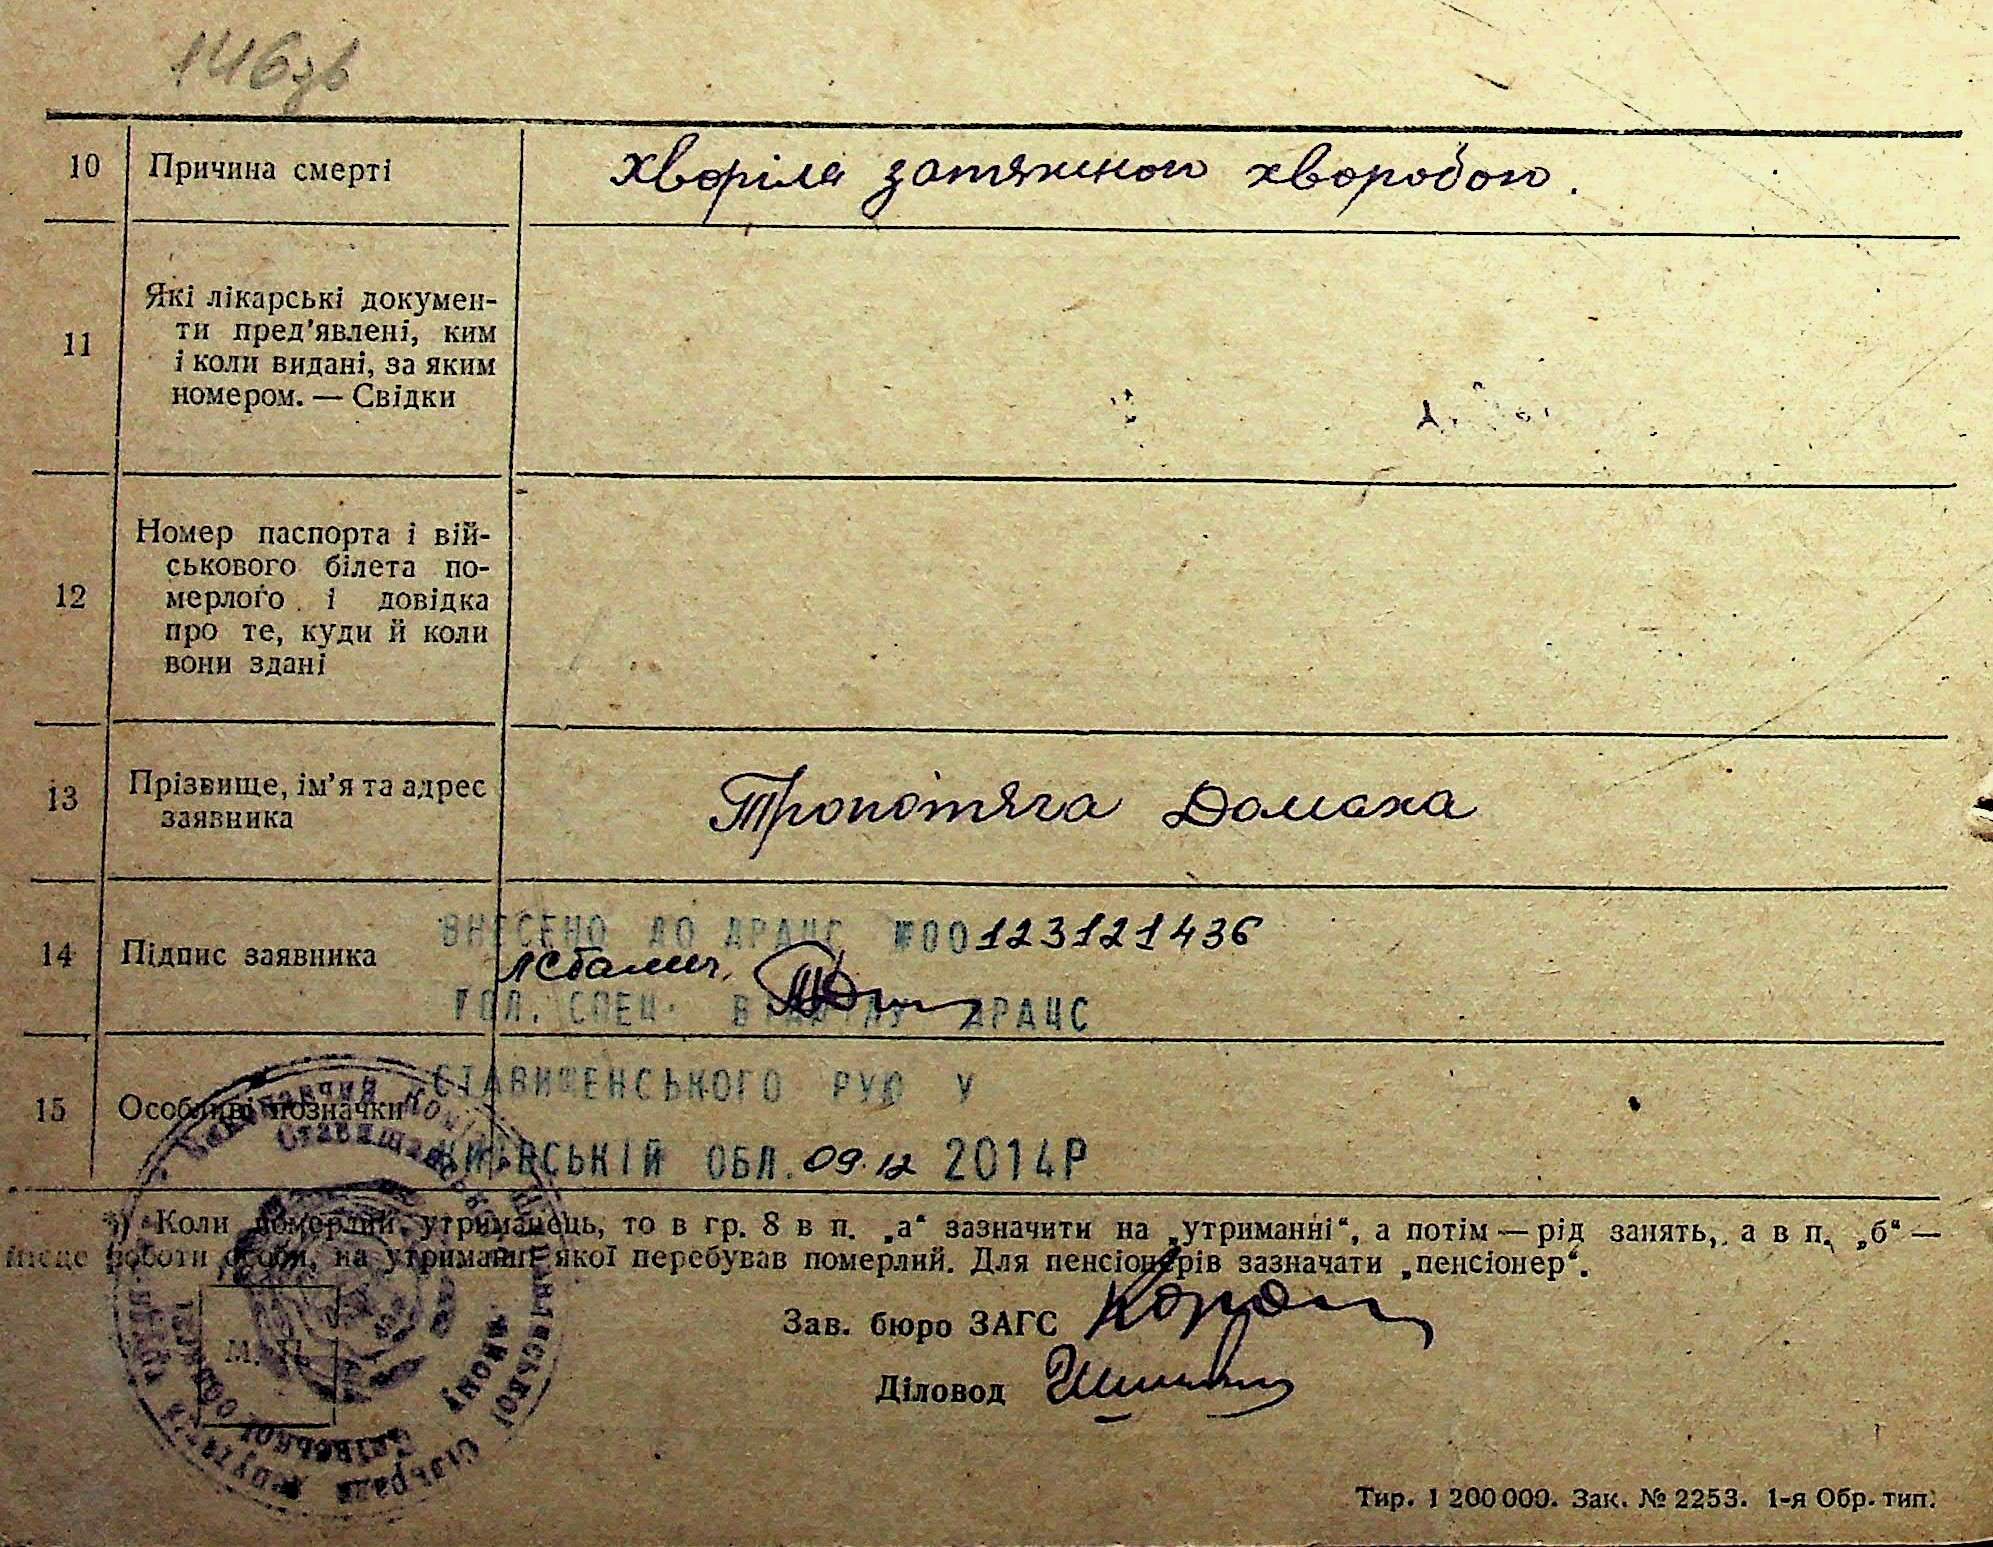 146зв
10 Причина смерті хворіла затяжною хворобою.
11 Які лікарські докумен-
ти пред'явлені, ким
і коли видані, за яким
номером. — Свідки
12 Номер паспорта і вій-
ськового білета по-
мерлого і довідка
про те, куди й коли
вони здані
13 Прізвище, ім'я та адрес
заявника
Тропотяга Домаха
ВНЕСЕНО ДО ДРАЦС №00123121436
14 Підпис заявника
ГОЛ. СПЕЦ. ВІДДІЛУ ДРАЦС
СТАВИЩЕНСЬКОГО РУЮ У
15 Особливі позначки
КИЇВСЬКІЙ ОБЛ. 09.12 2014Р
*) Коли померлий, утриманець, то в гр. 8 в п. „а“ зазначити на „утриманні“, а потім — рід занять, а в п. „б“ —
місце роботи особи, на утриманні якої перебував померлий. Для пенсіонерів зазначати „пенсіонер“.
Зав. бюро ЗАГС
Діловод
М. П.
Тир. 1 200 000. Зак. № 2253. 1-я Обр. тип.